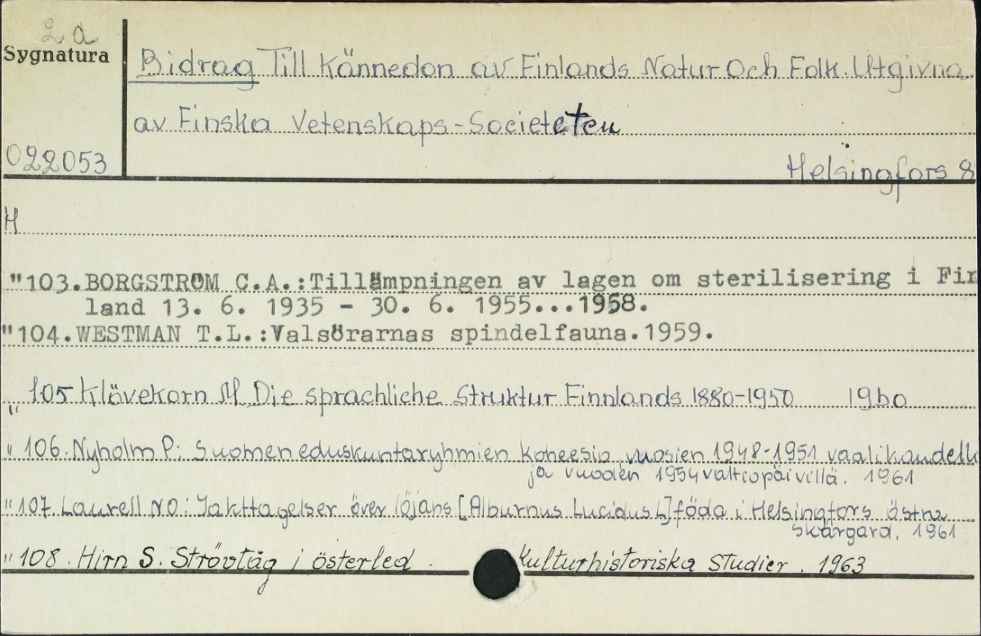 2a
Sygnatura
Bidrag Till Kännedon av Finlands Natur Och Folk. Utgivna
av Finska Vetenskaps-Societeten
022053
Helsingfors 8
H
"103.BORGSTRÖM C.A.:Tillämpningen av lagen om sterilisering i Fin
land 13. 6. 1935 - 30. 6. 1955...1958.
"104.WESTMAN T.L.:Valsörarnas spindelfauna.1959.
" 105 Klövekorn M. Die sprachliche Struktur Finnlands 1880-1950 1960
" 106. Nyholm P: Suomen eduskuntaryhmien koheesio vuosien 1948-1951 vaalikaudella
ja vuoden 1954 valtiopäivillä. 1961
"107 Laurell NO: Iakttagelser över löjans [Alburnus Lucidus L] föda i Helsingfors östra
skärgård. 1961
" 108. Hirn S. Strövtåg i österled. Kulturhistoriska Studier. 1963